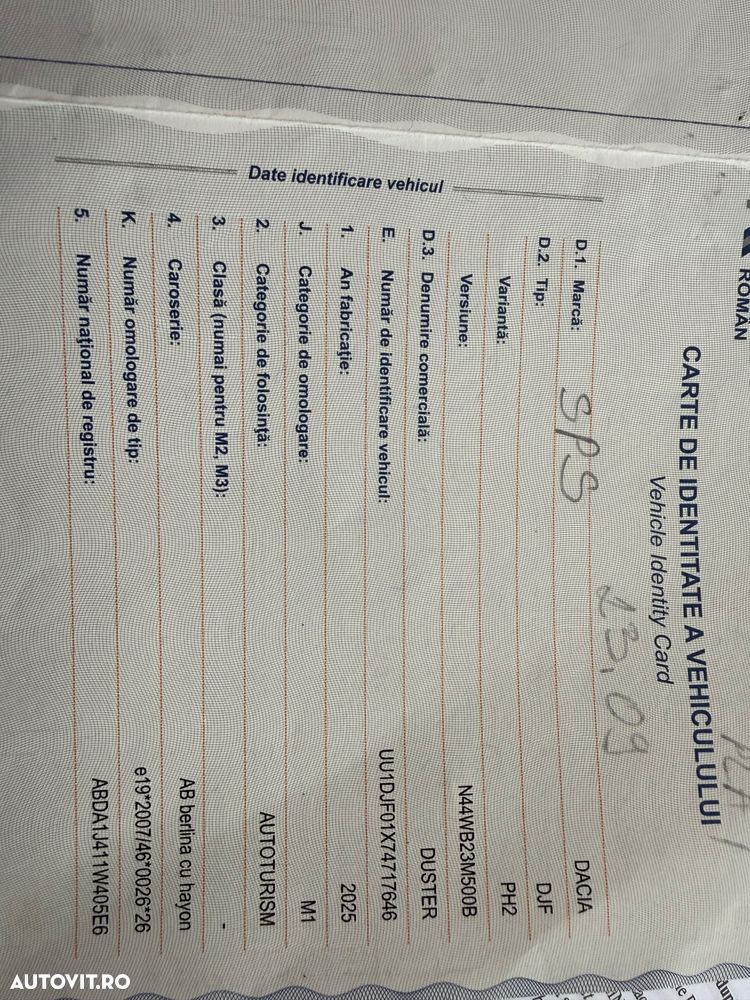 ROMÂN
CARTE DE IDENTITATE A VEHICULULUI
Vehicle Identity Card
13,09
SPS
Date identificare vehicul
D.1. Marcă: DACIA
D.2. Tip: DJF
Variantă: PH2
Versiune: N44WB23M500B
D.3. Denumire comercială: DUSTER
E. Număr de identificare vehicul: UU1DJF01X74717646
1. An fabricaţie: 2025
J. Categorie de omologare: M1
2. Categorie de folosinţă: AUTOTURISM
3. Clasă (numai pentru M2, M3): -
4. Caroserie: AB berlina cu hayon
K. Număr omologare de tip: e19*2007/46*0026*26
5. Număr naţional de registru: ABDA1J411W405E6
AUTOVIT.RO